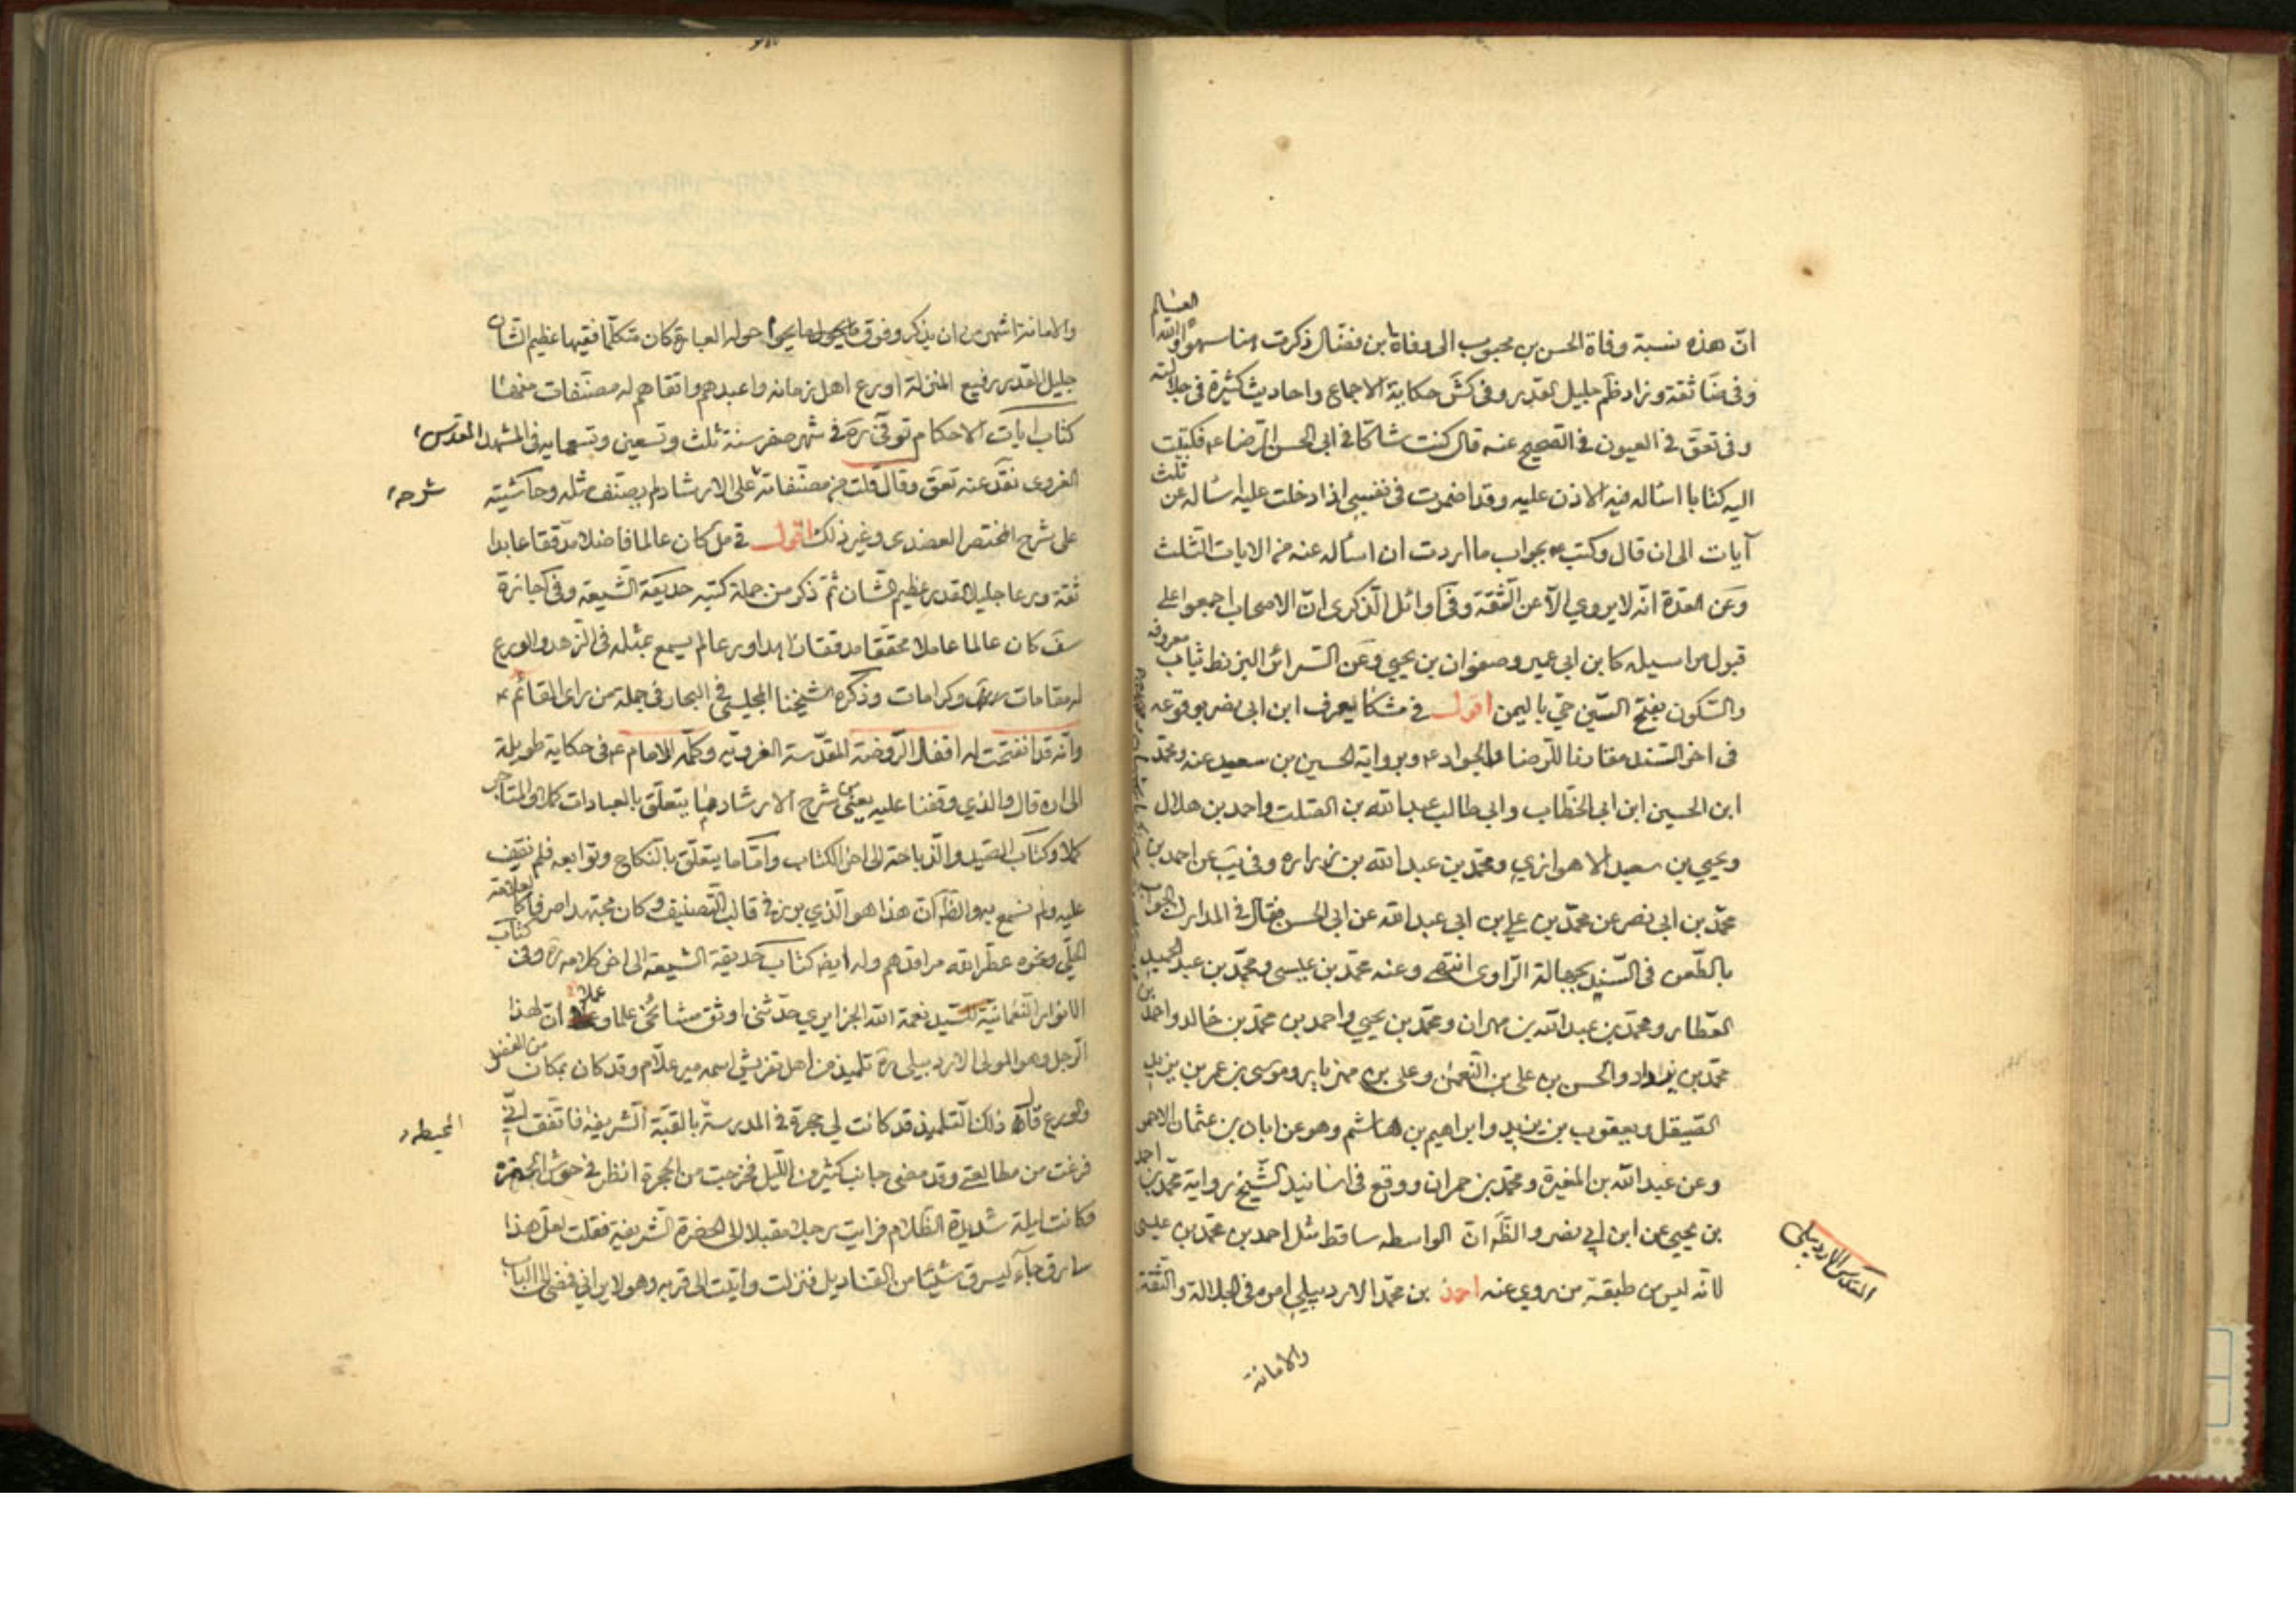 انّ هذه نسبة وفاة الحسن بن محبوب الى وفاة بن فضّال ذكرت هنا سهوا والله العالم
وفى ضا ثقة وزاد ظم جليل القدر وفى كش حكاية الاجماع واحاديث كثيرة فى جلالته
وفى تعق فى العيون فى الصحيح عنه قال كنت شاكّا فى ابى الحسن الرّضا ع فكتبت
اليه كتابا اسأله فيه الاذن عليه وقد اضمرت فى نفسى اذا دخلت عليه اسأله عن ثلث
آيات الى ان قال وكتب ع بجواب ما اردت ان اسأله عنه من الايات الثلث
وعن العدّة انّه لا يروي الّا عن الثّقة وفى اوائل الذّكرى انّ الاصحاب اجمعوا على
قبول مراسيله كابن ابى عمير وصفوان بن يحيى وعن السرائر البزنط ثياب معروفة
والسّكون بفتح السّين حيّ باليمن اقول فى مشكا يعرف ابن ابى نصر بوقوعه
فى اخر السّند مقارنا للرّضا والجواد ع وبرواية الحسين بن سعيد عنه ومحمّد
ابن الحسين ابن ابى الخطّاب وابى طالب عبد الله بن الصّلت واحمد بن هلال
ويحيى بن سعيد الاهوازي ومحمّد بن عبد الله بن زرارة وفى يب عن احمد بن
محمّد بن ابى نصر عن محمّد بن علي بن ابى عبد الله عن ابى الحسن فقال فى المدارك الجواب
بالطّعن فى السّند بجهالة الرّاوى انتهى وعنه محمّد بن عيسى ومحمّد بن عبد الحميد
العطار ومحمّد بن عبد الله بن مهران ومحمّد بن يحيى واحمد بن محمّد بن خالد واحمد بن
محمّد بن والحسن بن على بن النّعمن وعلى بن مهزيار وموسى بن عمر بن يزيد
الصّيقل ويعقوب بن يزيد وابراهيم بن هاشم وهو عن ابان بن عثمان الاحمر
وعن عبد الله بن المغيرة ومحمّد بن حمران ووقع فى اسانيد الشّيخ رواية محمّد بن احمد
بن يحيى عن ابن ابى نصر والظّ انّ الواسطه ساقط مثل احمد بن محمّد بن عيسى
لانّه ليس من طبقة من يروي عنه احمد بن محمّد الاردبيلي امره فى الجلالة والثّقة
المقدس الاردبيلى
والامانة
والامانة اشهر من ان يذكر وفوق ما يحوم حوله العبارة كان متكلّما فقيها عظيم الشّان
جليل القدر رفيع المنزلة اورع اهل زمانه واعبدهم واتقاهم له مصنّفات منها
كتاب ايات الاحكام توفّى ره فى شهر صفر سنة ثلث وتسعين وتسعمايه فى المشهد المقدّس
الغروى نقد عنه تعق وقال قلت من مصنّفاته على الارشاد لم يصنّف مثله وحاشيته
شرحه
على شرح المختصر العضدى وغير ذلك اقول فى مل كان عالما فاضلا مدقّقا عابدا
ثقة ورعا جليل القدر عظيم الشّان ثمّ ذكر من جملة كتبه حديقة الشّيعه وفى اجازة
كان عالما عاملا محقّقا مدقّقا زاهدا ورعا لم يسمع بمثله فى الزّهد والورع
له مقامات وكرامات وذكره شيخنا المجلسى فى البحار فى جملة من راى القائم ع
وانّه قد انفتحت له اقفال الرّوضة المقدّسة الغرويّه وكلّمه الامام ع فى حكاية طويلة
الى ان قال والذي وقفنا عليه يعنى من شرح الارشاد ما يتعلّق بالعبادات كملا والمتاجر
كملا وكتاب الصّيد والذّباحة الى اخر الكتاب وامّا ما يتعلّق بالنّكاح وتوابعه فلم نقف
عليه ولم نسمع به والظّ انّ هذا هو الّذي برز فى قالب التّصنيف وكان مجتهدا صرفا كالعلامة
الحلّي وغيره عطّر الله مراقدهم وله ايضا كتاب حديقة الشيعه الى اخر كلامه ره وفى كتاب
الانوار النّعمانيّة للسّيد نعمة الله الجزايري حدّثنى اوثق مشائخى علما وعملا انّ لهذا
الرّجل وهو المولى الاردبيلى ره تلميذ من اهل تفريش اسمه مير علّام وقد كان بمكان من الفضل
والورع قال ذلك التّلميذ قد كانت لي حجرة فى المدرسة بالقبّة الشّريفة فاتّفق انّي
المحيطه
فرغت من مطالعتى وقد مضى جانب كثير من اللّيل فخرجت من الحجرة انظر فى حوش الحضرة
وكانت ليلة شديدة الظّلام فرايت رجلا مقبلا الى الحضرة الشّريفة فقلت لعلّ هذا
سارق جاء ليسرق شيئا من القناديل فنزلت واتيت الى قربه وهو لا يرانى فمضى الى الباب